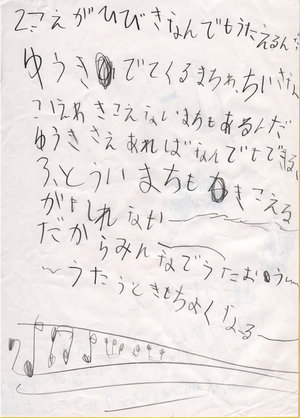 2こえがひびきなんでもうたえるんだ
ゆうきのでてくるまちわちいさな
こえわきこえないまちもあるんだ
ゆうきさえあればなんでもできる
3、とういまちもきこえる
かもしれない〜
だからみんなでうたおう〜
〜うたうときもちよくなる〜